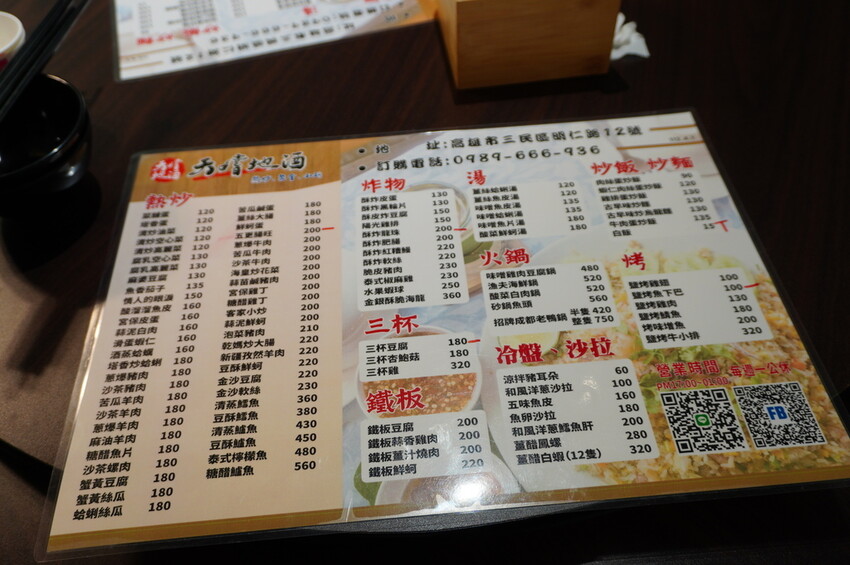 地 址:高雄市三民區明仁路12號
訂購電話:0989-666-936
熱炒
菜脯蛋 120
塔香蛋 120
清炒油菜 120
清炒空心菜 120
清炒高麗菜 120
腐乳空心菜 130
腐乳高麗菜 130
麻婆豆腐 130
魚香茄子 135
情人的眼淚 150
酸溜溜魚皮 160
宮保皮蛋 160
蒜泥白肉 160
滑蛋蝦仁 160
酒蒸蛤蠣 160
塔香炒蛤蜊 180
蔥爆豬肉 180
沙茶豬肉 180
苦瓜羊肉 180
沙茶羊肉 180
蔥爆羊肉 180
麻油羊肉 180
糖醋魚片 180
沙茶螺肉 180
蟹黃豆腐 180
蟹黃絲瓜 180
蛤蜊絲瓜 180
苦瓜鹹蛋 180
薑絲大腸 180
鮮蚵蛋 180
五更腸旺 200
蔥爆牛肉 200
苦瓜牛肉 200
沙茶牛肉 200
海皇炒花菜 200
蒜苗鹹豬肉 200
宮保雞丁 200
糖醋雞丁 200
客家小炒 200
蒜泥鮮蚵 200
泡菜豬肉 210
乾媽炒大腸 220
新疆孜然羊肉 220
豆酥鮮蚵 220
金沙豆腐 220
金沙軟絲 230
清蒸鱈魚 360
豆酥鱈魚 380
清蒸鱸魚 430
豆酥鱸魚 450
泰式檸檬魚 480
糖醋鱸魚 560
炸物
酥炸皮蛋 130
酥炸黑輪片 130
酥皮炸豆腐 150
陽光雞排 150
酥炸龍珠 200
酥炸肥腸 200
酥炸紅糟鰻 220
酥炸軟絲 220
脆皮豬肉 220
泰式椒麻雞 230
水果蝦球 250
金銀酥脆海龍 360
三杯
三杯豆腐 180
三杯杏鮑菇 180
三杯雞 320
鐵板
鐵板豆腐 200
鐵板蒜香雞肉 200
鐵板薑汁燒肉 200
鐵板鮮蚵 220
湯
薑絲蛤蜊湯 120
薑絲魚皮湯 120
味噌魚皮湯 120
味噌蛤蜊湯 120
味噌魚片湯 150
酸菜鮮蚵湯 150
火鍋
味噌雞肉豆腐鍋 480
漁夫海鮮鍋 520
酸菜白肉鍋 520
砂鍋魚頭 560
招牌成都老鴨鍋 半隻 420
整隻 750
冷盤、沙拉
涼拌豬耳朵 60
和風洋蔥沙拉 100
五味魚皮 160
魚卵沙拉 180
和風洋蔥鱈魚肝 200
薑醋鳳螺 280
薑醋白蝦(12隻) 320
炒飯 炒麵
肉絲蛋炒飯 90
蝦仁肉絲蛋炒飯
雞排蛋炒飯 120
古早味炒飯
古早味炒烏龍麵 135
牛肉蛋炒飯 135
白飯 15
烤
鹽烤雞翅 100
鹽烤魚下巴 100
鹽烤雞肉 130
鹽烤鯖魚 180
烤味增魚 200
鹽烤牛小排 320
營業時間 每週一公休
PM17:00-01:00
FB